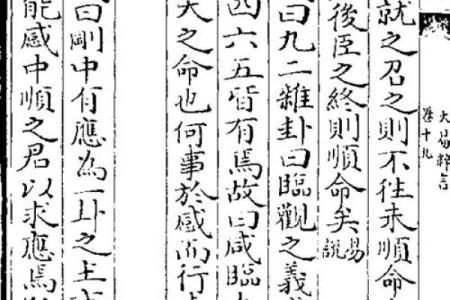 大易粹言
卷十九
就之召之則不往未順命
後臣之終則順命矣易說
曰九二雜卦曰臨觀之義
四六五皆有焉故曰咸臨
天之命也何事於感而行
曰剛中有應為一卦之主
能感中順之君以求應焉